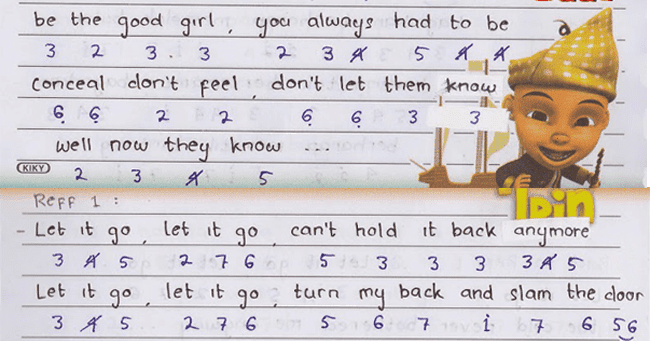 be the good girl, you always had to be
3 2 3 . 3 2 3 4̸ 5 4̸ 4̸
conceal don't feel, don't let them know
6̣ 6̣ 2 2 6̣ 6̣ 3 3
well now they know
KIKY
2 3 4̸ 5
IPIN
Reff 1 :
- Let it go, let it go, can't hold it back anymore
3 4̸ 5 2 7 6 5 3 3 3 3 4̸ 5
Let it go, let it go, turn my back and slam the door
3 4̸ 5 2 7 6 5 6 7 1̇ 7 6 56